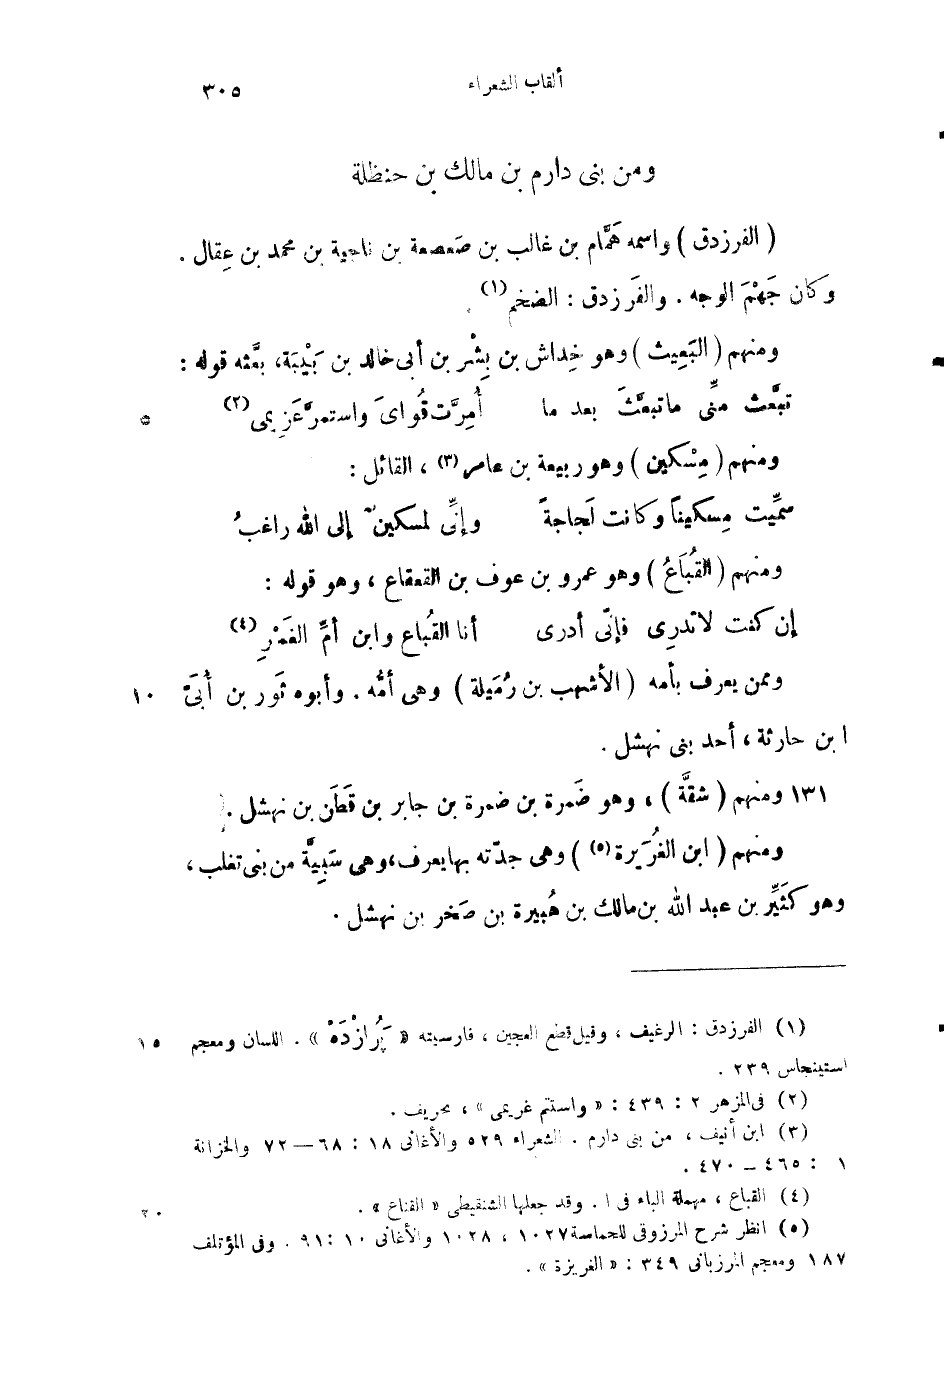 ألقاب الشعراء ٣٠٥
ومن بنى دارم بن مالك بن حنظلة
( الفرزدق ) واسمه هَمَّام بن غالب بن صَعصعة بن ناجية بن محمد بن عِقال .
وكان جَهْمَ الوجه . والفَرزدق : الضخم(١).
ومنهم ( البَعِيث ) وهو خِداش بن بِشْر بن أبى خالد بن بَيْبَة، بعَّثه قوله :
تبعَّث منِّى ماتبعثَ بعد ما أُمِرَّت قُواىَ واستمرَّ عَزِيمى(٢)
ومنهم ( مِسْكين ) وهو ربيعة بن عامر(٣) ، القائل :
سمِّيت مِسكيناً وكانت لَجاجةً وإنِّى لمسكينٌ إلى الله راغبُ
ومنهم ( القُبَاعُ ) وهو عمرو بن عوف بن القعقاع ، وهو قوله :
إن كنت لاتدرِى فإنّى أدرى أنا القُباع وابن أمِّ الغَمْرِ(٤)
وممن يعرف بأمه ( الأشهب بن رُمَيلة ) وهى أمُّه . وأبوه ثَور بن أُبَىّ ١٠
ابن حارثة ، أحد بنى نهشل .
١٣١ ومنهم ( شقَّة ) ، وهو ضَمرة بن ضمرة بن جابر بن قَطَن بن نهشل .
ومنهم ( ابن الغُرَيرة(٥) ) وهى جدّته بها يعرف، وهى سَبِيَّة من بنى تغلب ،
وهو كثَيِّر بن عبد الله بن مالك بن هُبيرة بن صَخر بن نهشل .
(١) الفرزدق : الرغيف ، وقيل قطع العجين ، فارسيته « پَرُازْدَهْ » . اللسان ومعجم ١٥
استينجاس ٢٣٩ .
(٢) فى المزهر ٢ : ٤٣٩ : « واستتم غريمى » ، تحريف .
(٣) ابن أنيف ، من بنى دارم . الشعراء ٥٢٩ والأغانى ١٨ : ٦٨ — ٧٢ والخزانة
١ : ٤٦٥ — ٤٧٠ .
(٤) القباع ، مهملة الباء فى ا . وقد جعلها الشنقيطى « القناع » . ٢٠
(٥) انظر شرح المرزوقى للحماسة ١٠٢٧ ، ١٠٢٨ والأغانى ١٠ : ٩١ . وفى المؤتلف
١٨٧ ومعجم المرزبانى ٣٤٩ : « الغريزة » .